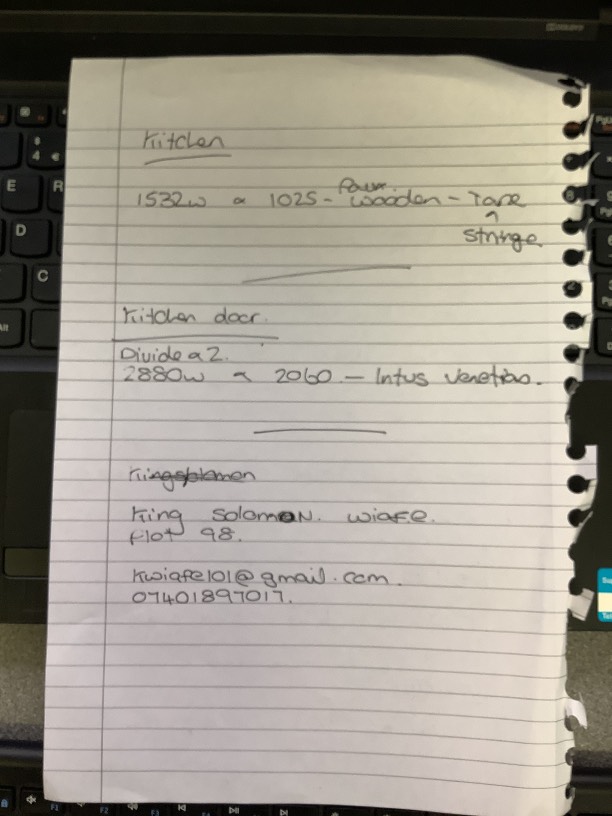 Kitchen
1532w x 1025 - Faux wooden - Tape
^
String
Kitchen door.
Divide x 2.
2880w x 2060 - Intus Venetian.
King Solomon. Wiafe.
Plot 98.
Kwiafe101@gmail.com.
07401897017.
E
R
D
C